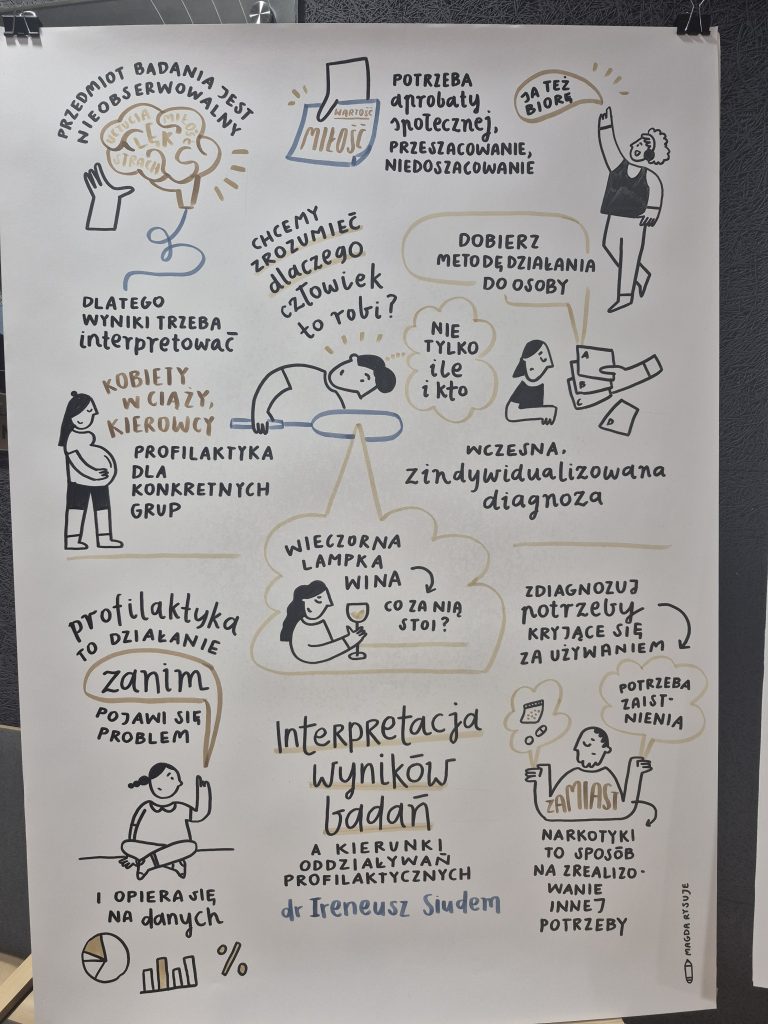 PRZEDMIOT BADANIA JEST
NIEOBSERWOWALNY
UCZUCIA MIŁOŚĆ
LĘK
STRACH
WARTOŚĆ
MIŁOŚĆ
POTRZEBA
aprobaty
społecznej,
PRZESZACOWANIE,
NIEDOSZACOWANIE
JA TEŻ
BIORĘ
DLATEGO
WYNIKI TRZEBA
interpretować
CHCEMY
ZROZUMIEĆ
dlaczego
człowiek
to robi?
NIE
TYLKO
ile
i kto
DOBIERZ
METODĘ DZIAŁANIA
DO OSOBY
A
B
C
D
WCZESNA,
zindywidualizowana
diagnoza
KOBIETY
W CIĄŻY,
KIEROWCY
PROFILAKTYKA
DLA
KONKRETNYCH
GRUP
WIECZORNA
LAMPKA
WINA
CO ZA NIĄ
STOI?
profilaktyka
TO DZIAŁANIE
zanim
POJAWI SIĘ
PROBLEM
I OPIERA SIĘ
NA danych
%
Interpretacja
wyników
badań
A KIERUNKI
ODDZIAŁYWAŃ
PROFILAKTYCZNYCH
dr Ireneusz Siudem
ZDIAGNOZUJ
potrzeby
KRYJĄCE SIĘ
ZA UŻYWANIEM
POTRZEBA
ZAIST-
NIENIA
ZAMIAST
NARKOTYKI
TO SPOSÓB
NA ZREALIZO-
WANIE
INNEJ
POTRZEBY
MAGDA RYSUJE